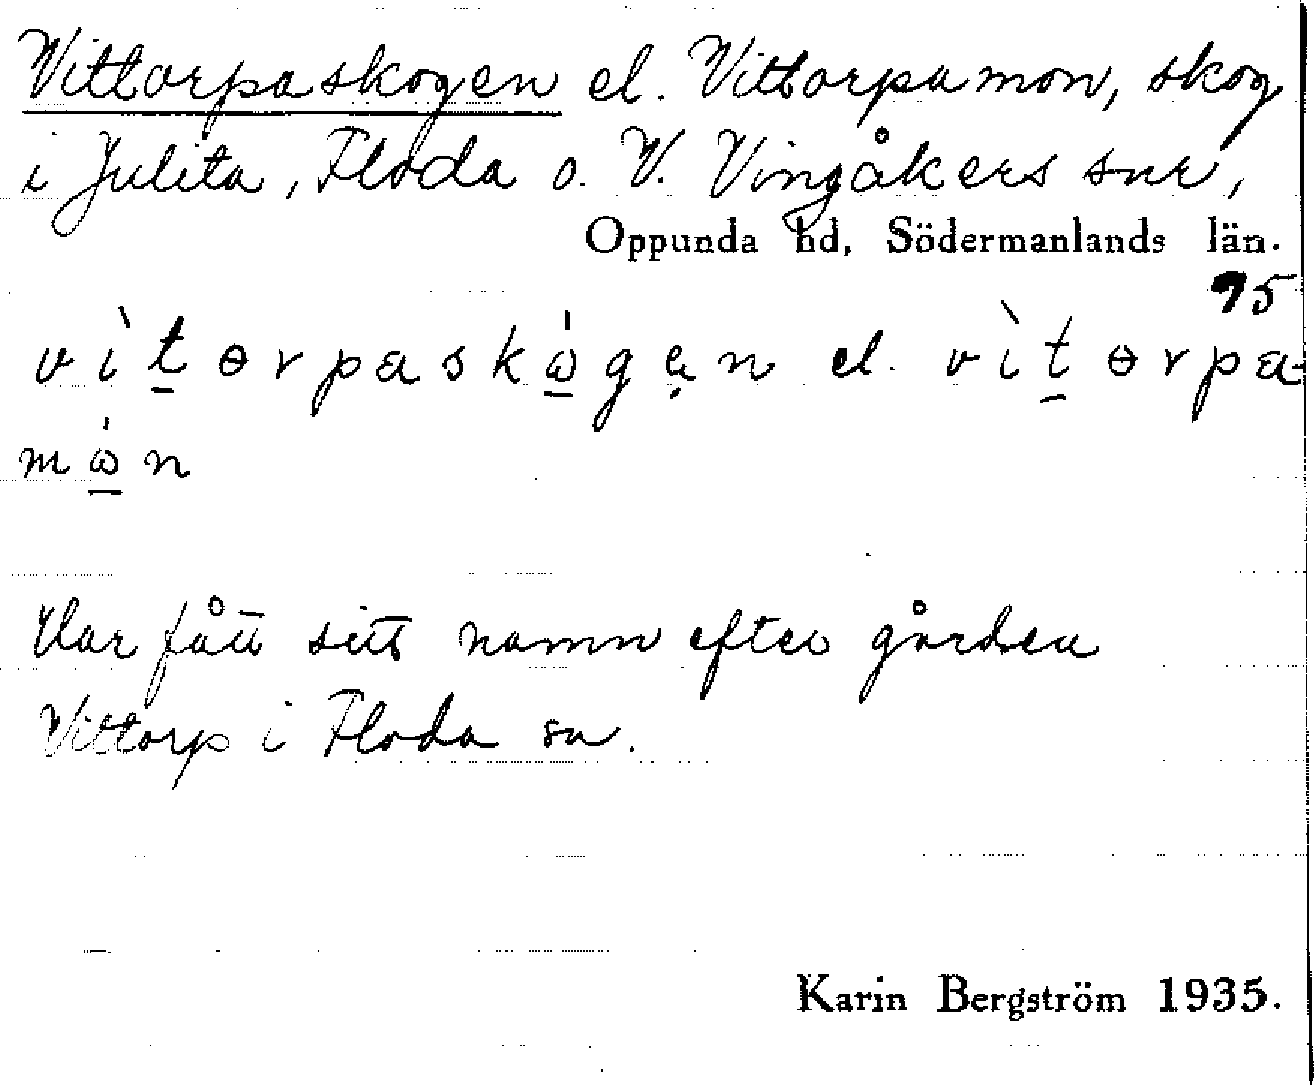 Vittorpaskogen el. Vittorpamon, skog
i Julita, Floda o. V. Vingåkers snr,
Oppunda hd, Södermanlands län.
95
vìt̲ɵrpaskώ̲gən el. vìt̲ɵrpa-
mώ̲n
Har fått sitt namn efter gården
Vittorp i Floda sn.
Karin Bergström 1935.